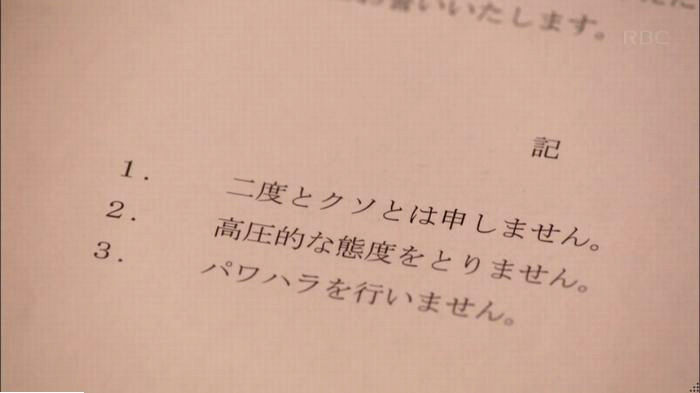 いいたします。
RBC
記
1. 二度とクソとは申しません。
2. 高圧的な態度をとりません。
3. パワハラを行いません。